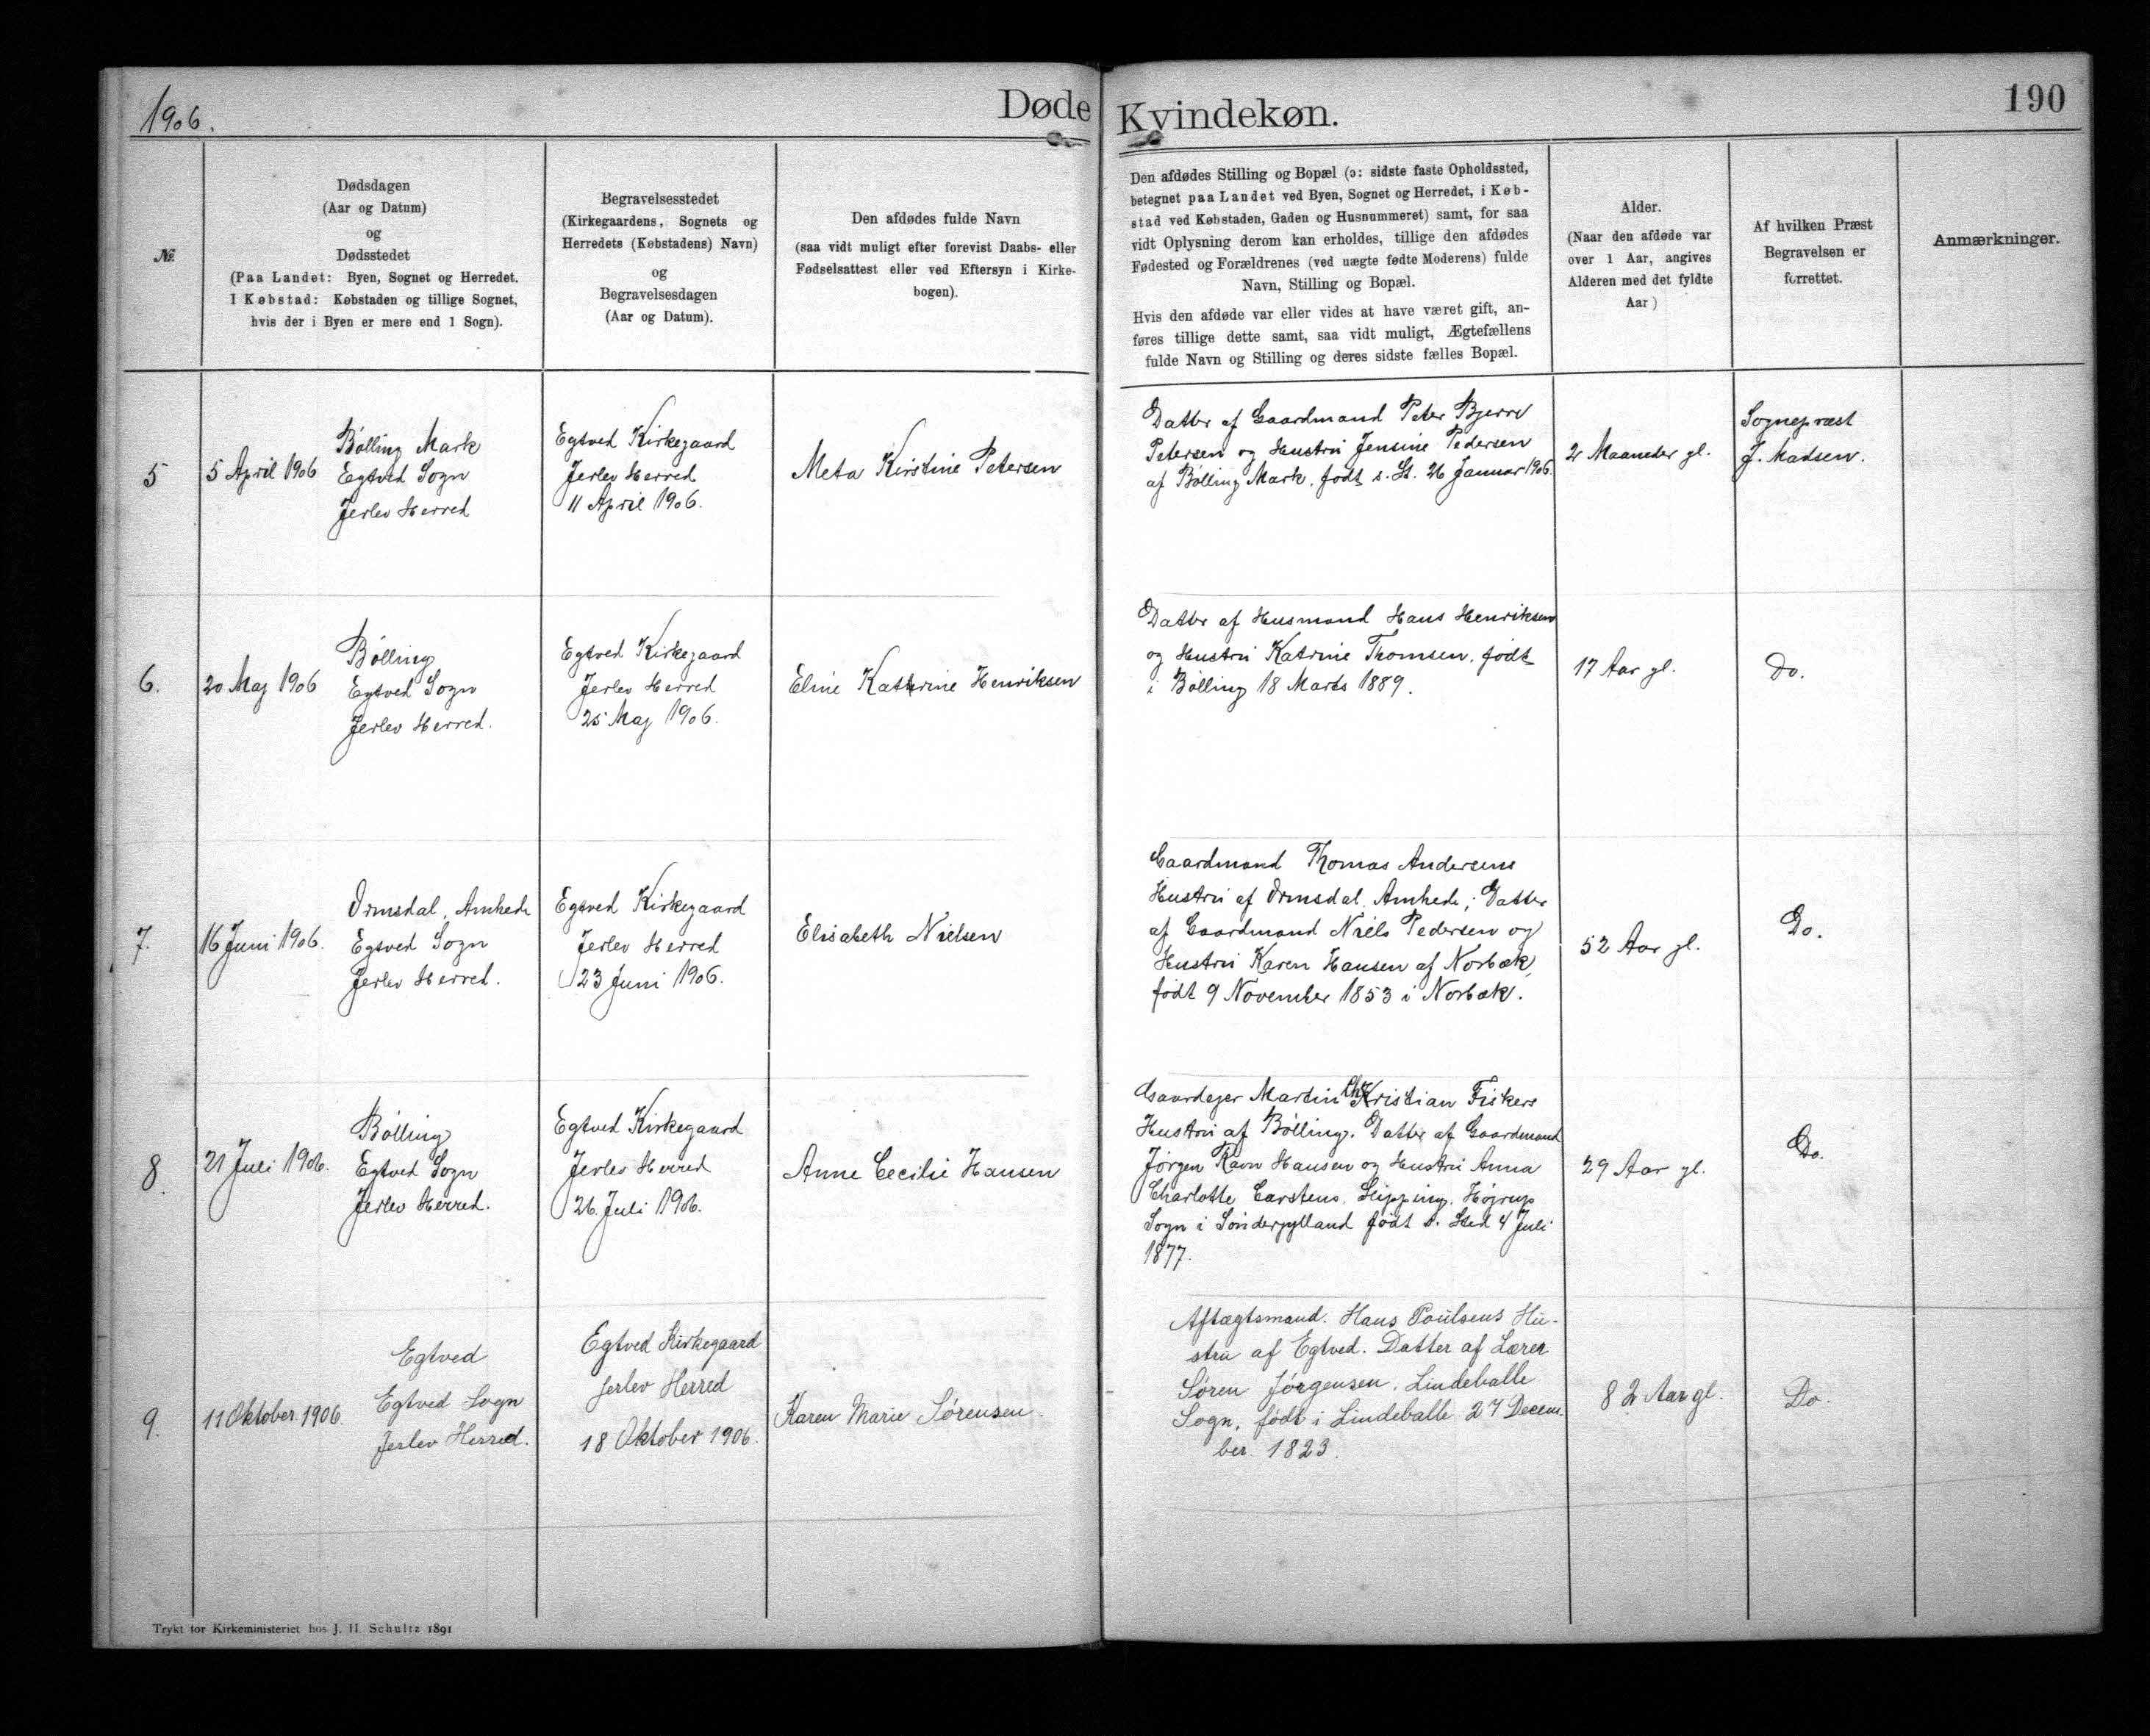 1906.
Døde Kvindekøn.
190
Nr.
Dødsdagen
(Aar og Datum)
og
Dødsstedet
(Paa Landet: Byen, Sognet og Herredet.
I Købstad: Købstaden og tillige Sognet,
hvis der i Byen er mere end 1 Sogn).
Begravelsesstedet
(Kirkegaardens, Sognets og
Herredets (Købstadens) Navn)
og
Begravelsesdagen
(Aar og Datum).
Den afdødes fulde Navn
(saa vidt muligt efter forevist Daabs- eller
Fødselsattest eller ved Eftersyn i Kirke-
bogen).
Den afdødes Stilling og Bopæl (ɔ: sidste faste Opholdssted,
betegnet paa Landet ved Byen, Sognet og Herredet, i Køb-
stad ved Købstaden, Gaden og Husnummeret) samt, for saa
vidt Oplysning derom kan erholdes, tillige den afdødes
Fødested og Forældrenes (ved uægte fødte Moderens) fulde
Navn, Stilling og Bopæl.
Hvis den afdøde var eller vides at have været gift, an-
føres tillige dette samt, saa vidt muligt, Ægtefællens
fulde Navn og Stilling og deres sidste fælles Bopæl.
Alder.
(Naar den afdøde var
over 1 Aar, angives
Alderen med det fyldte
Aar)
Af hvilken Præst
Begravelsen er
forrettet.
Anmærkninger.
5
5 April 1906
Bölling Mark
Egtved Sogn
Jerlev Herred
Egtved Kirkegaard
Jerlev Herred
11 April 1906.
Meta Kirstine Petersen
Datter af Gaardmand Peter Bjerre
Petersen og Hustru Jensine Pedersen
af Bölling Mark, födt s. St. 26 Januar 1906.
2 Maaneder gl.
Sognepræst
J. Madsen.
6.
20 Maj 1906
Bölling
Egtved Sogn
Jerlev Herred.
Egtved Kirkegaard
Jerlev Herred
25 Maj 1906.
Eline Kathrine Henriksen
Datter af Husmand Hans Henriksen
og Hustru Katrine Thomsen, födt
i Bölling 18 Marts 1889.
17 Aar gl.
Do.
7.
16 Juni 1906.
Ormsdal, Amhede
Egtved Sogn
Jerlev Herred.
Egtved Kirkegaard
Jerlev Herred
23 Juni 1906.
Elisabeth Nielsen
Gaardmand Thomas Andersens
Hustru af Ormsdal, Amhede; Datter
af Gaardmand Niels Pedersen og
Hustru Karen Hansen af Norbæk,
födt 9 November 1853 i Norbæk.
52 Aar gl.
Do.
8
21 Juli 1906.
Bölling
Egtved Sogn
Jerlev Herred.
Egtved Kirkegaard
Jerlev Herred
26. Juli 1906.
Anne Cecilie Hansen
Gaardejer Martin Christian Fiskers
Hustru af Bölling. Datter af Gaardmand
Jörgen Ravn Hansen og Hustru Anna
Charlotte Carstens, Höjrup
Sogn i Sönderjylland födt s. Sted 4 Juli
1877.
29 Aar gl.
Do.
9.
11 Oktober 1906.
Egtved
Egtved Sogn
Jerlev Herred.
Egtved Kirkegaard
Jerlev Herred
18 Oktober 1906.
Karen Marie Sörensen.
Aftægtsmand Hans Poulsens Hu-
stru af Egtved. Datter af Lærer
Sören Jörgensen, Lindeballe
Sogn, födt i Lindeballe 27 Decem-
ber 1823.
82 Aar gl.
Do.
Trykt for Kirkeministeriet hos J. H. Schultz 1891